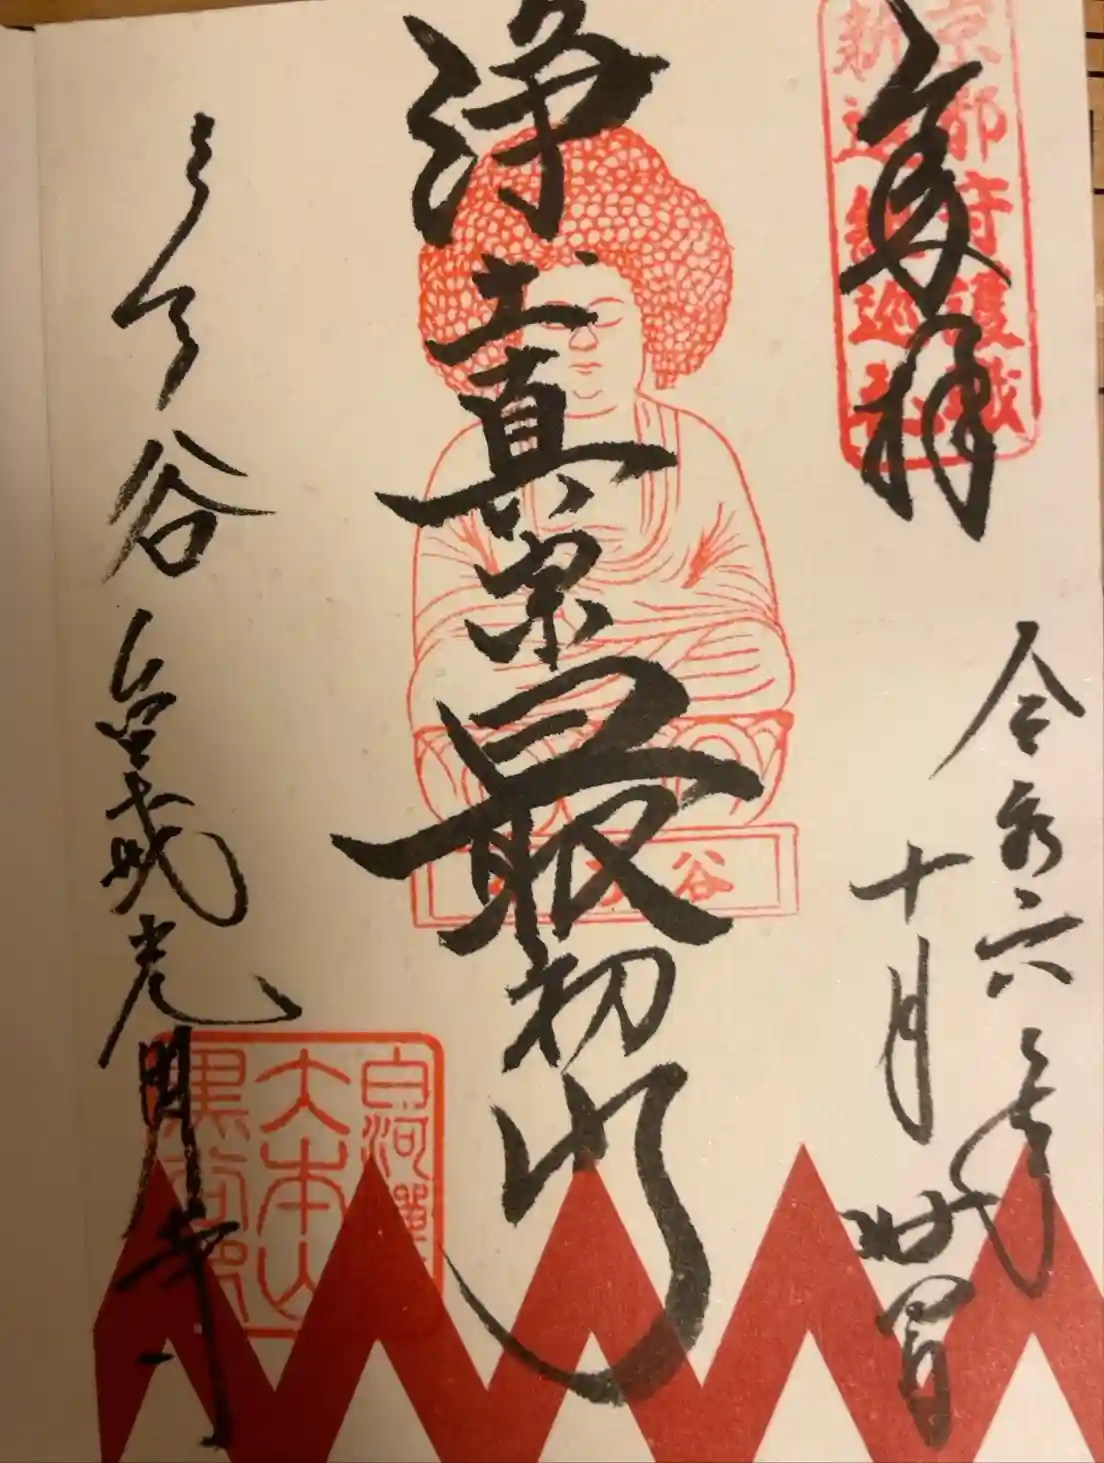 京都守護職
新選組巡
奉拝
令和六年
十月
浄土真宗最初門
谷
白河禅
大本山
黒谷
くろ谷 金戒光明寺